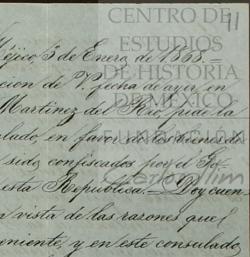 CENTRO DE
ESTUDIOS
DE HISTORIA
DE MEXICO
FUNDACIÓN
11
Méjico, 3 de Enero de 1868.=
cion de V. fecha de ayer, en
Martinez del Rio, pide la
lado, en favor de los bienes de
sido, confiscados por el
esta Republica.= Doy cuen
n vista de las razones que
eniente, y en este consulado,